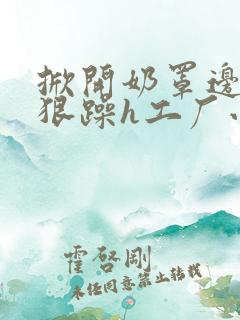 掀開奶罩邊
狠躁h工厂、
霍啓剛
未任同意禁止转载